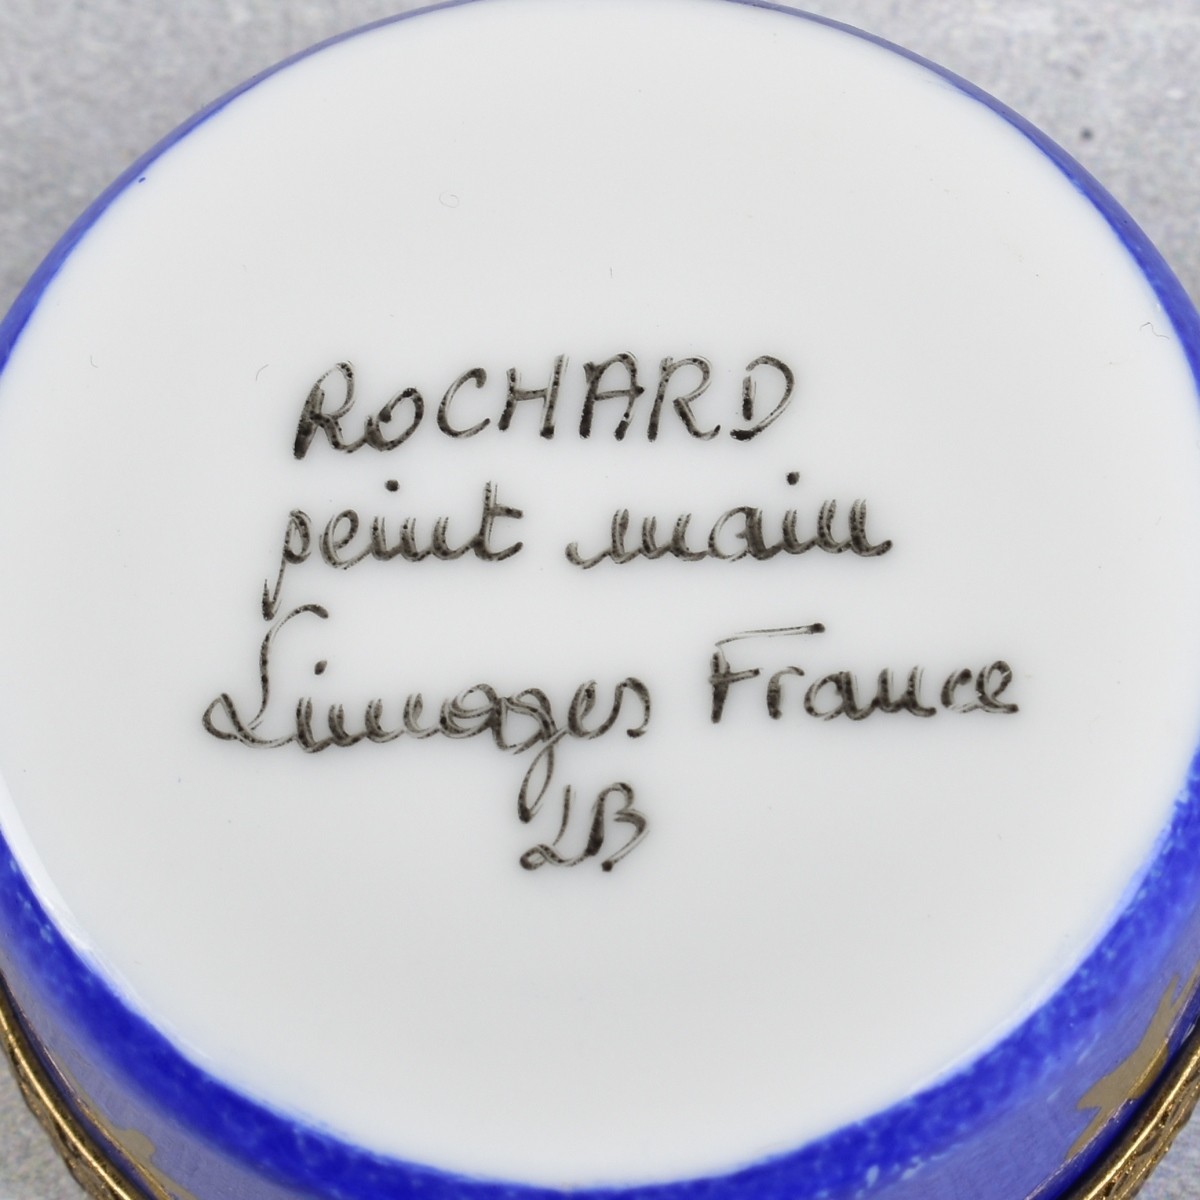 ROCHARD
peint main
Limoges France
LB